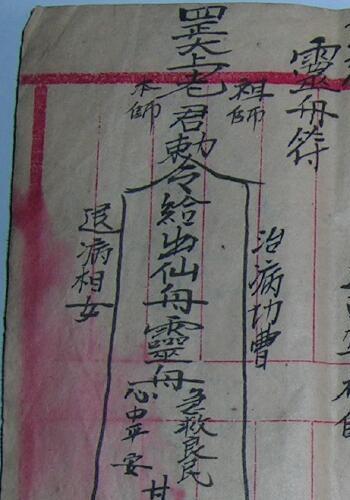 靈舟符
祖師
治病功曹
罡太上老君勅令給出仙舟靈舟
急救良民
心中平安
甘
本師
退病相女